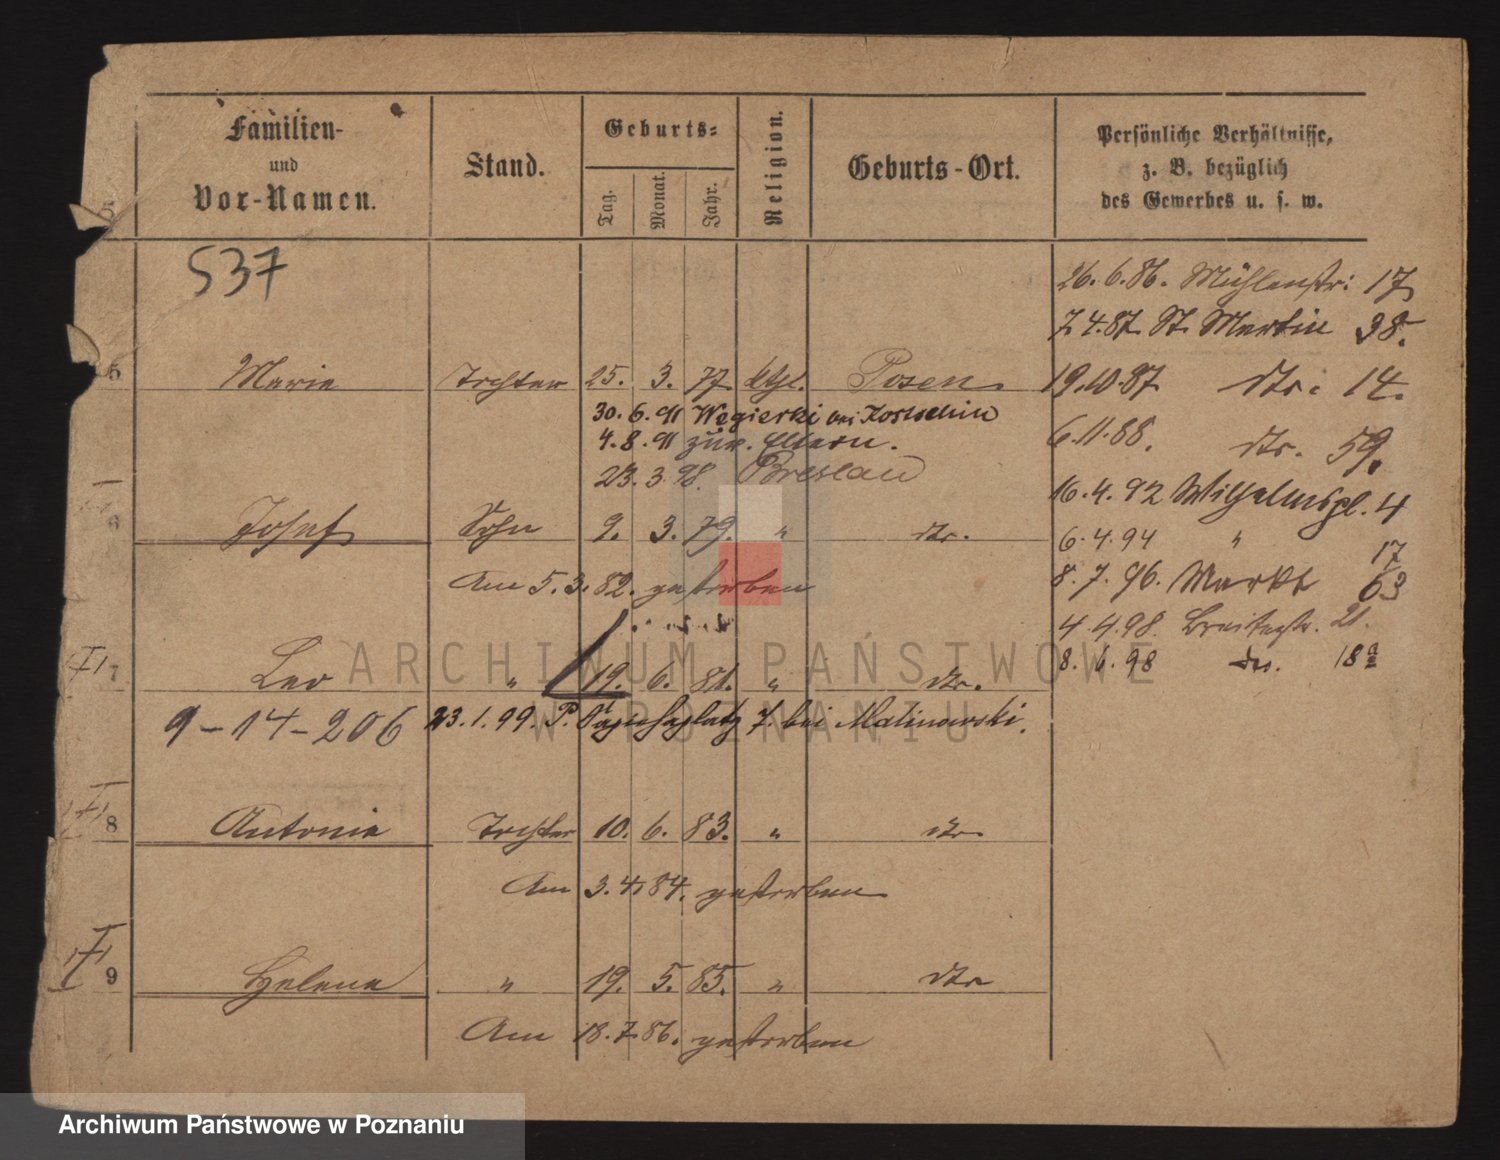 Familien-
und
Vor-Namen.
Stand.
Geburts=
Tag.
Monat.
Jahr.
Religion.
Geburts-Ort.
Persönliche Verhältnisse,
z. B. bezüglich
des Gewerbes u. s. w.
537
26. 6. 86. Mühlenstr: 17
7. 4. 87. St. Martin 38.
5 Marie Tochter 25. 3. 77. kthl. Posen
19. 10. 87. dto. 14.
30. 6. 91 Węgierki bei Kostschin
4. 8. 91 zur. Eltern.
6. 11. 88. dto. 59.
23. 3. 98. Breslau
16. 4. 92 Wilhelmspl. 4
6 Josef Sohn 9. 3. 79. " dto.
6. 4. 94 " 17
Am 5. 3. 82. gestorben
8. 7. 96. Markt 63
4. 4. 98. Breitestr. 21.
8. 6. 98 dto. 18a
7 Leo " 19. 6. 81. " dto.
9-14-206
23. 1. 99. P. Sapiehaplatz 7. bei Malinowski.
8 Antonie Tochter 10. 6. 83. " dto.
Am 3. 4. 84. gestorben
9 Helene " 19. 5. 85. " dto
Am 18. 7. 86. gestorben
ARCHIWUM PAŃSTWOWE
W POZNANIU
Archiwum Państwowe w Poznaniu